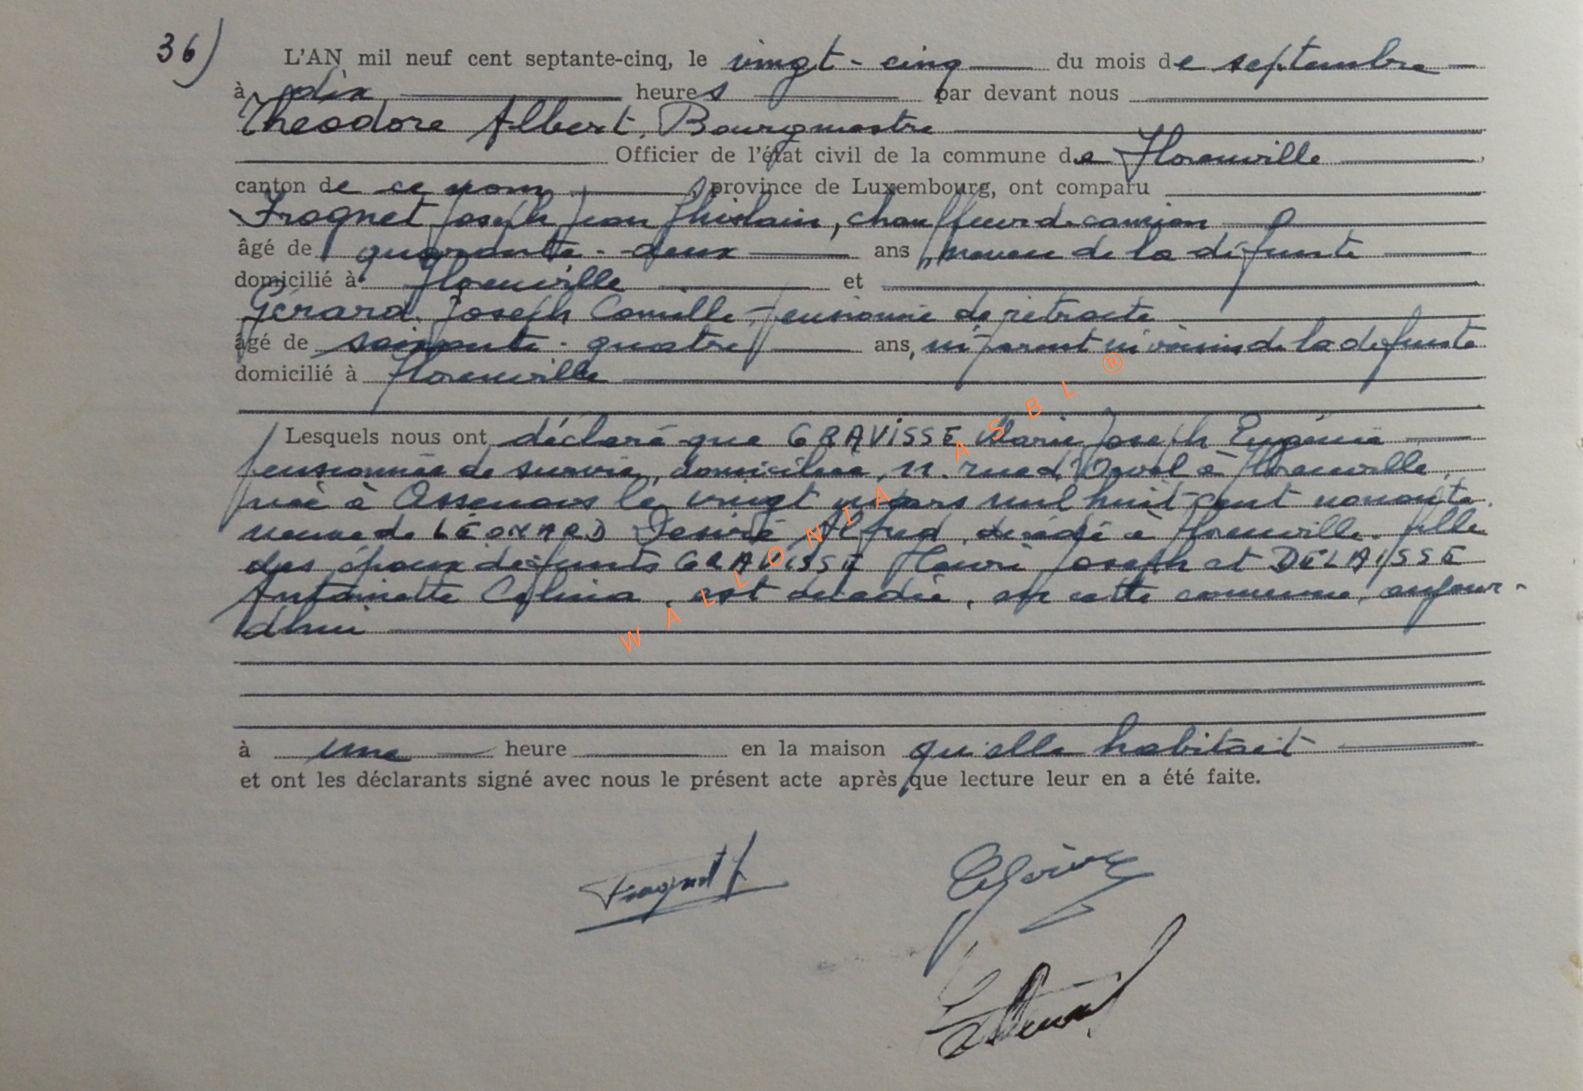 36)
L'AN mil neuf cent septante-cinq, le vingt-cinq du mois de septembre
à dix heures par devant nous
Théodore Albert, Bourgmestre
Officier de l'état civil de la commune de Florenville
canton de ce nom, province de Luxembourg, ont comparu
Frognet Joseph Jean Ghislain, chauffeur de camion
âgé de quarante-deux ans, neveu de la défunte
domicilié à Florenville et
Gérard Joseph Camille, pensionné de retraite
âgé de soixante-quatre ans, ni parent ni voisin de la défunte
domicilié à Florenville
Lesquels nous ont déclaré que GRAVISSE Marie Joseph Eugénie
pensionnée de survie, domiciliée, 11. rue d'Orval à Florenville,
née à Assenois le vingt mars mil huit cent nonante
veuve de LÉONARD Désiré Alfred, décédé à Florenville. fille
des époux défunts GRAVISSE Henri Joseph et DELAISSE
Antoinette, est décédée, en cette commune, aujour-
d'hui
à une heure en la maison qu'elle habitait
et ont les déclarants signé avec nous le présent acte après que lecture leur en a été faite.
Frognet J
WALLONIA ASBL ®